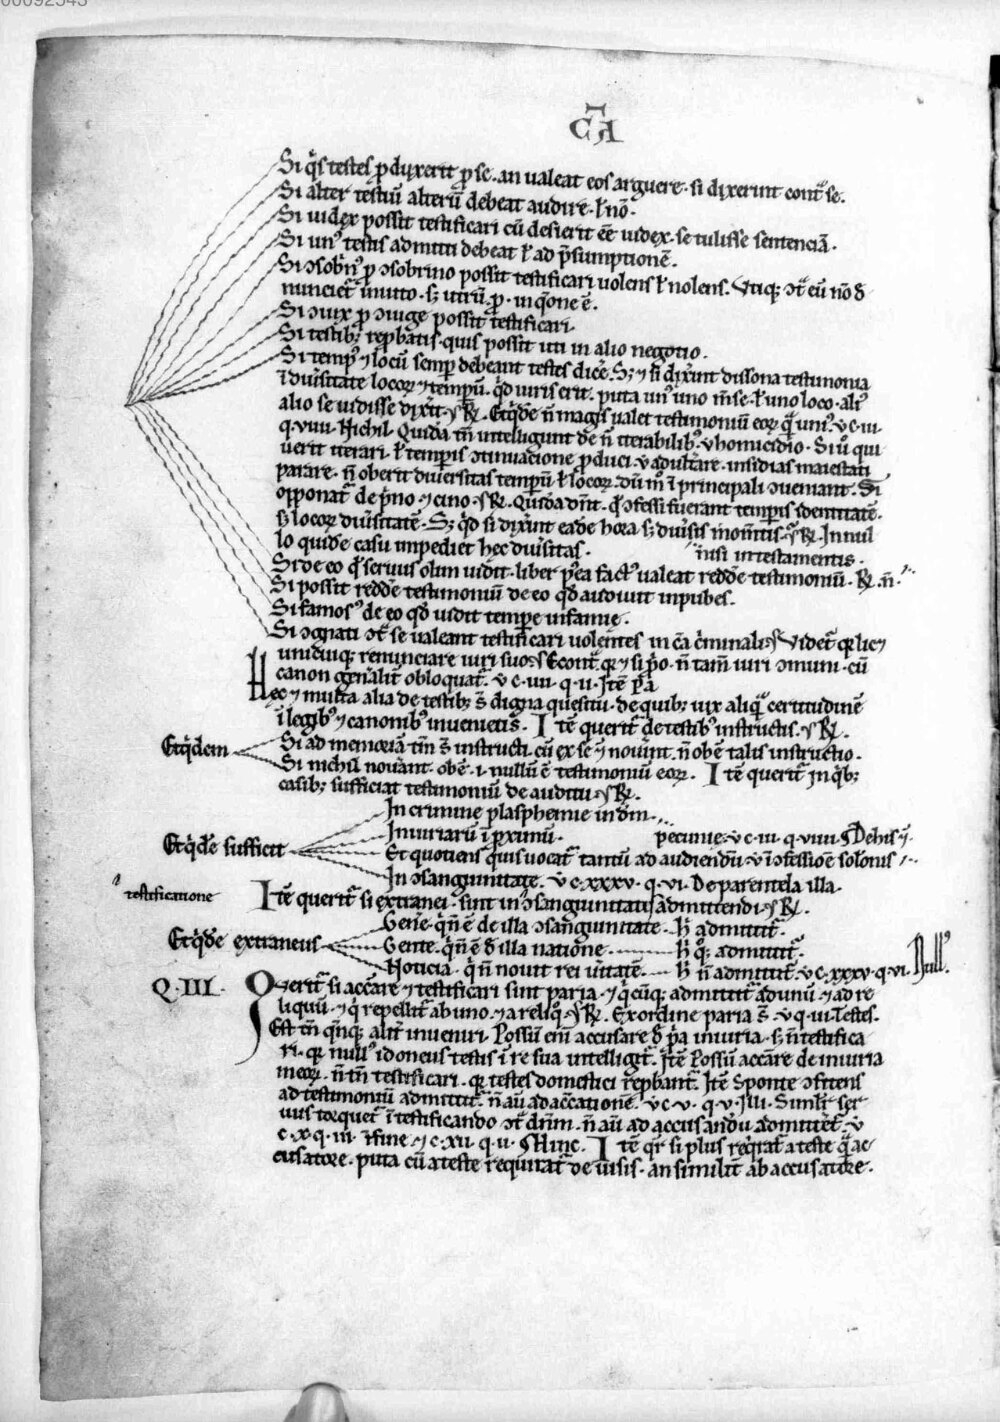 00092543
CĀ
Si q̇s testes ꝓduxerit ꝓ se · an ualeat eos arguere · si dixerint cont̃ se.
Si alter testiū alterū debeat audire · ł nō·
Si iudex possit testificari cū desierit eē iudex · se tulisse sentenciā·
Si unꝰ testis admitti debeat ł ad p̄sumptionē·
Si ꝯsobrinꝰ ꝓ ꝯsobrino possit testificari uolens ł nolens.
nunciet̃ inuito · sꝫ utrū · ꝓ · in q̄one ē·
Si ꝯiux ꝓ ꝯiuge possit testificari·
Si testibꝫ reꝓbatis · quis possit uti in alio negotio·
Si tempꝰ ⁊ locū semꝑ debeant testes dicẽ · Sꝫ ⁊ si dixerint dissona testimonia
ĩ diũsitate locoꝝ ⁊ tempoꝝ · qd̃ iuris erit · puta unꝰ uno m̃se · ł uno loco · aliꝰ
alio se uidisse dixit̃ · ⁊ ℞. Et q̇dẽ ñ magis ualet testimoniū eoꝝ q̄ unꝰ · v c · iii·
q · viiii · Nichil · Quidā tm̃ intelligunt de ñ iterabilibꝫ · v homicidio · Si ů qui
uerit iterari · ł temporis ꝯtinuacione ꝓduci · v adulterare · insidias maiestati
parare · ñ oberit diuersitas tempoꝝ ł locoꝝ · dū mͦ ĩ principali ꝯueniant · Si
opponat̃ de p̃no ⁊ cino · ⁊ ℞. Quidā dñt · qď ꝯfessi fuerant temporis idemtitatē·
sꝫ locoꝝ diũsitatē · Sꝫ qd̃ si dixerint eadē hora sꝫ diũsis momentis · ⁊ ℞. In nul
lo quidē casu impediet hec diũsitas · nisi in testamentis·
Si de eo qď seruus olim uidit · liber p̃ea factꝰ ualeat reddẽ testimoniū · ℞ · ñ·
Si possit reddẽ testimoniū de eo qď audiuit inpubes·
Si famosꝰ de eo qď uidit tempore infamie·
Si ꝯgnati ꝯt̃ se ualeant testificari uolentes in cā criminali · ⁊ Videt̃ ꝙ licꝫ
unicuiqꝫ renunciare iuri suo · ⁊ Econt̃ · ꝙ ⁊ si p̃o · ñ tam̃ iuri ꝯmuni · cū
canon gen̄alit̃ obloquat̃ · v c · vii · q · ii · Itē p̃a
Hec ⁊ multa alia de testibꝫ s̄ digna questiu · de quibꝫ uix aliq̄ certitudinē
ĩ legibꝰ ⁊ canonibꝰ inuenietis · Itē querit̃ de testibꝰ instructis · ⁊ ℞.
Et q̇dem
Si ad memoriā tm̃ s̄ instructi · cū ex se ⁊ nouerint · ñ obẽ talis instructio·
Si nichil nouerant · obẽ · i · nullū ē testimoniū eoꝝ · Itē querit̃ in q̇bꝫ
casibꝫ sufficiat testimoniū de auditu · ⁊ ℞.
Et q̇dẽ sufficit
In crimine plasphemie in dm̃·
Iniuriarū ĩ ꝓximū · pecunie · v c · iii · q · viiii · § De his ⁊·
Et quotiens quis uocat̃ tantū ad audiendū · v ĩ ꝯfessione solonis
In ꝯsanguinitate · v c · xxxv · q · vi · De parentela illa·
testificatione
Itē querit̃ si extranei · sint in ꝯsanguinitatis admittendi · ⁊ ℞.
Et q̇dẽ extraneus
Genẽ · q̇ ñ ē de illa ꝯsanguinitate · h̃ admittit̃·
Gente · q̇ ñ ē ď illa natione · h̃ qͦꝫ admittit̃·
Noticia · q̇ ñ nouit rei ũitatē · h̃ ñ admittit̃ · v c · xxxv · q · vi · Nullꝰ·
Q·III· Querit̃ si accusare ⁊ testificari sint paria · ⁊ q̇cūqꝫ admittit̃ ad unū ⁊ ad re
liquū · ⁊ q̇ repellit̃ ab uno · ⁊ a reliqͦ · ⁊ ℞. Ex ordine paria s̄ · v q · iii · Testes·
Est tñ q̄nqꝫ alit̃ inueniri · Possū eni accusare ď p̃a iniuria · sꝫ ñ testifica
ri · ꝙ nullꝰ idoneus testis ĩ re sua intelligit̃ · Itē Possū accusare de iniuria
meoꝝ · ñ tm̃ testificari · ꝙ testes domestici reꝓbant̃ · Itē Sponte ꝯfitens
ad testimoniū admittit̃ · ñ aū ad accusationē · v c · v · q · v · Illi · Similit̃ ser
uus torquet̃ ĩ testificando ꝯt̃ dnm̃ · ñ aū ad accusandū admittet̃ · v
c · x · q · iii · ĩ fine · ⁊ c · xii · q · ii · § Hinc · Itē qr̃ si plus req̇rat̃ a teste q̄ ac
cusatore · puta cū a teste requirat̃ de uisis · an similit̃ ab accusatore·